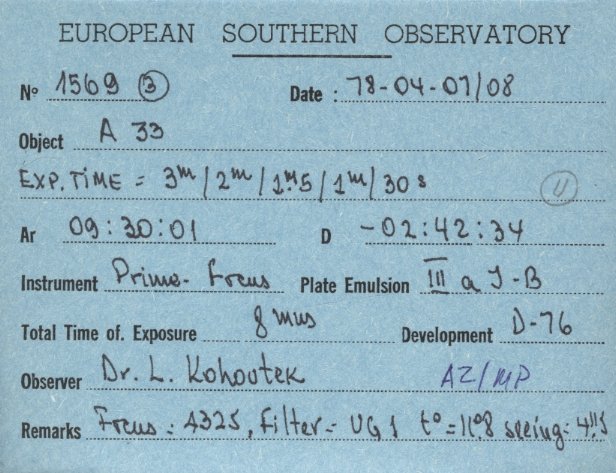 EUROPEAN SOUTHERN OBSERVATORY
N° 1569 ③ Date : 78-04-07/08
Object A 33
EXP. TIME = 3m/2m/1m.5/1m/30s U
Ar 09:30:01 D -02:42:34
Instrument Prime-Focus Plate Emulsion III a J-B
Total Time of. Exposure 8 mns Development D-76
Observer Dr. L. Kohoutek AZ/MP
Remarks Focus: 4325, Filter= UG1 t°=11°.8 seeing: 4".5